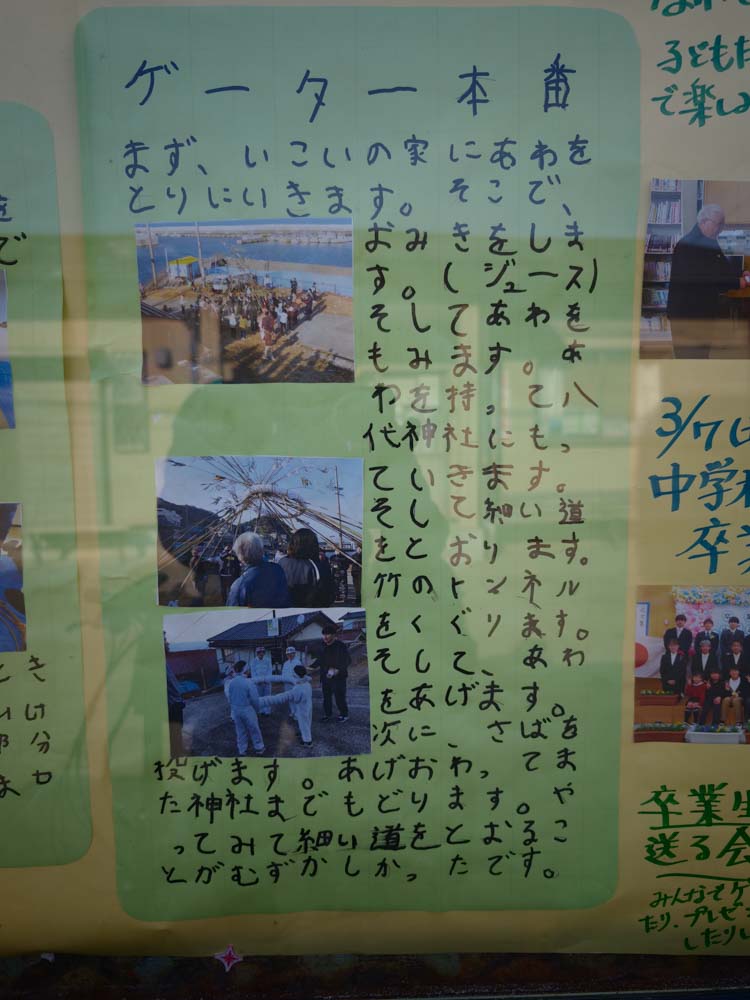 ゲーター本番
まず、いこいの家にあわを
とりにいきます。そこで、
おみきをしま
す。(ジュース)
そしてあわを
もみます。お
わを持って八
代神社にもっ
ていきます。
そして細い道
をとおります。
竹のトンネル
をくぐります。
そして、あわ
をあげます。
次に、さばを
投げます。あげおわってま
た神社までもどります。や
ってみて細い道をとおるこ
とがむずかしかったです。
を
で
子どもた
で楽し
3/7に
中学
卒業
卒業生
送る会
みんなでゲ
たり・プレゼ
したりし